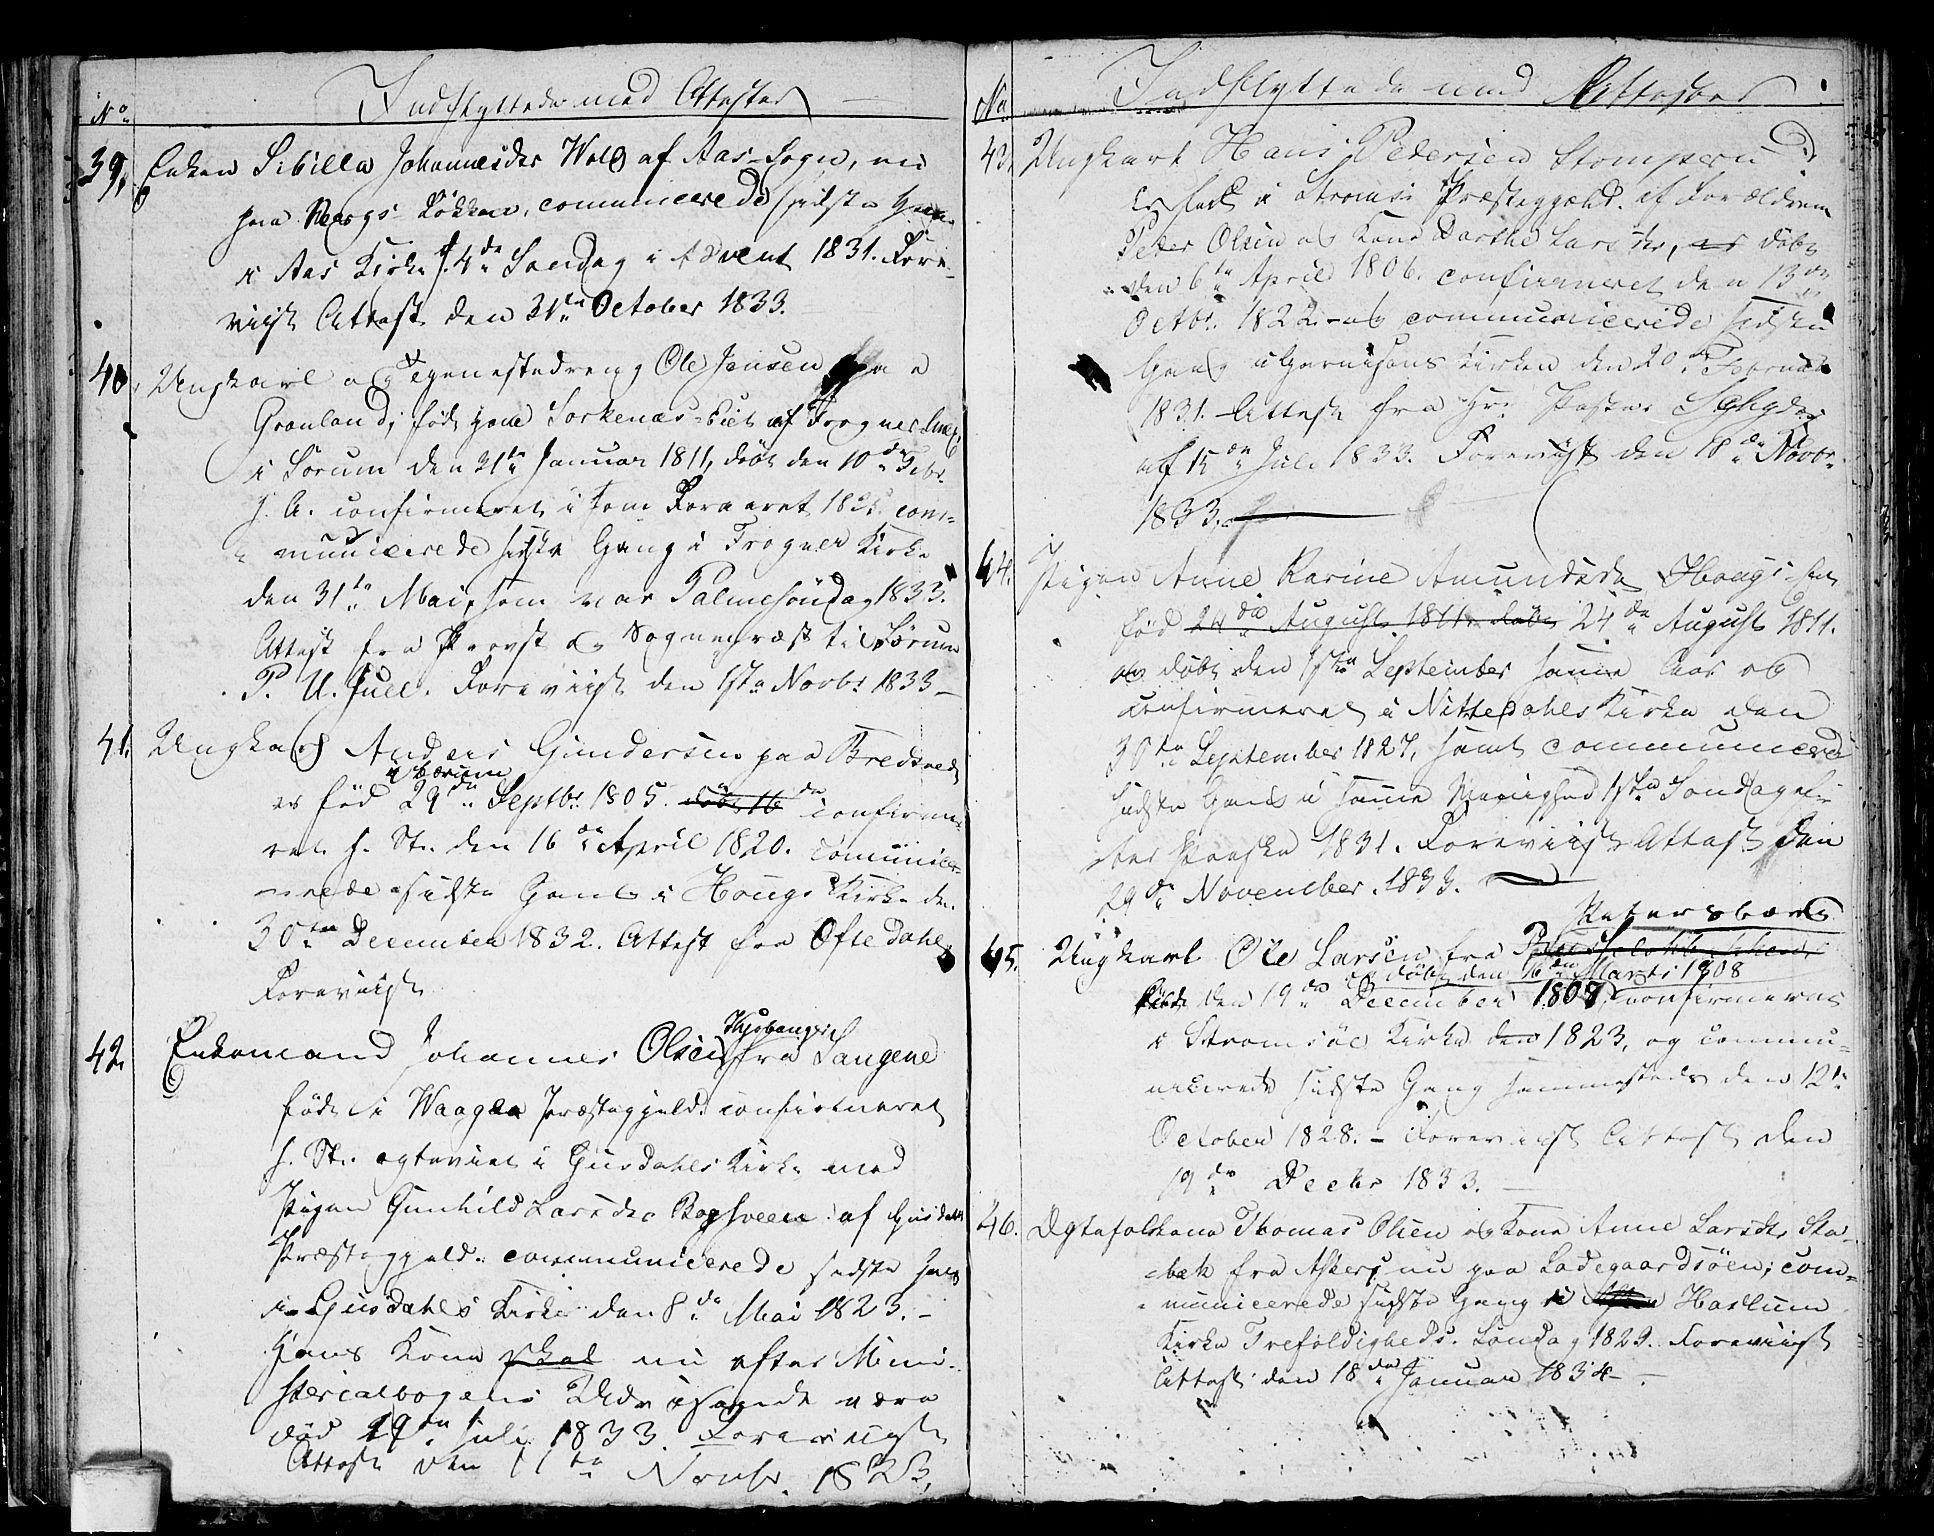 No Indflyttede med Attester
39, Enken Sibilla Johannesdtr Wold af Aas-Sogn, nu
paa Bergs-Løkken, communicerede sidste Gang
i Aas Kirke f. 4de Søndag i Advent 1831. Fore-
viist Attest den 31te October 1833.
40, Ungkarl og Tjenestedreng Ole Jensen paa
Grønland; født paa Sorkenæs-Eiet af Frogner Anex,
i Sørum den 21te Januar 1811, døbt den 10de Febr.
s. A. confirmeret i som Foraaret 1828 com-
municerede sidste Gang i Frogner Kirke
den 31te Mai, som var Palmesøndag 1833.
Attest fra Provst og Sognepræst til Sørum
P. U. Juell. Foreviist den 1ste Novbr 1833 -
41. Ungkarl Anders Gundersen paa Bredsved
i Bærum
er fød 29de Septbr. 1805. døbt 16de confirme-
ret s. St. den 16de April 1820. communicer-
erede sidste Gang i Hougs Kirke den
30te December 1832. Attest fra Oftedahl
Foreviist
42. Enkemand Johannes Olsen fra Sangene
født i Waagen Præstegjeld confirmeret
s. St. egteviet i Gusdahls Kirke med
Pigen Gunhild Larsdtr Bogsveen af Gusdahls
Præstegjeld. communicerede sidste Gang
i Gusdahls Kirke den 8de Mai 1823. -
Hans Kone skal nu efter Mini-
sterialbogens Udvisende være
død 19de Juli 1833. Foreviist
Attest den 11te Novbr. 1833,
No Indflyttede med Attester
43, Ungkarl Hans Pedersen Stomperud
er født i Strømsø Præstegjeld. af Forældrene
Peder Olsen og Kone Barthe Larsdtr, er døbt
den 6te April 1806. confirmeret den 13de
Octbr. 1822 - og communicerede sidste
Gang i Garnisons Kirken den 20de Februar
1831. Attest fra Hr. Pastor Schydtz
af 15de Juli 1833. Foreviist den 18de Novbr.
1833.
44. Pigen Anne Karine Amundsdtr Hougs-Eiet
fød 24de August 1811. døbt 24de August 1811.
og døbt den 1ste September samme Aar og
confirmeret i Nittedahls Kirke den
30te September 1827, samt communicerede
sidste Gang i samme Menighed 1ste Søndag ef-
ter Paaske 1831. Foreviist Attest den
29de November 1833.
Petersborg
45. Ungkarl Ole Larsen fra
og døbt den 16de Marts 1808
født den 19de December 1807, confirmeret
i Strømsøe Kirke den 1823, og commu-
nicerede sidste Gang sammesteds den 12te
October 1828. - Foreviist Attest den
19de Decbr 1833.
46. Egtefolkene Thomas Olsen og Kone Anne Larsdtr Sta-
bæk fra Asker; nu paa Ladegaardsøen; com-
municerede sidste Gang i Haslum
Kirke Trefoldigheds-Søndag 1829. Foreviist
Attest den 18de Januar 1834 -